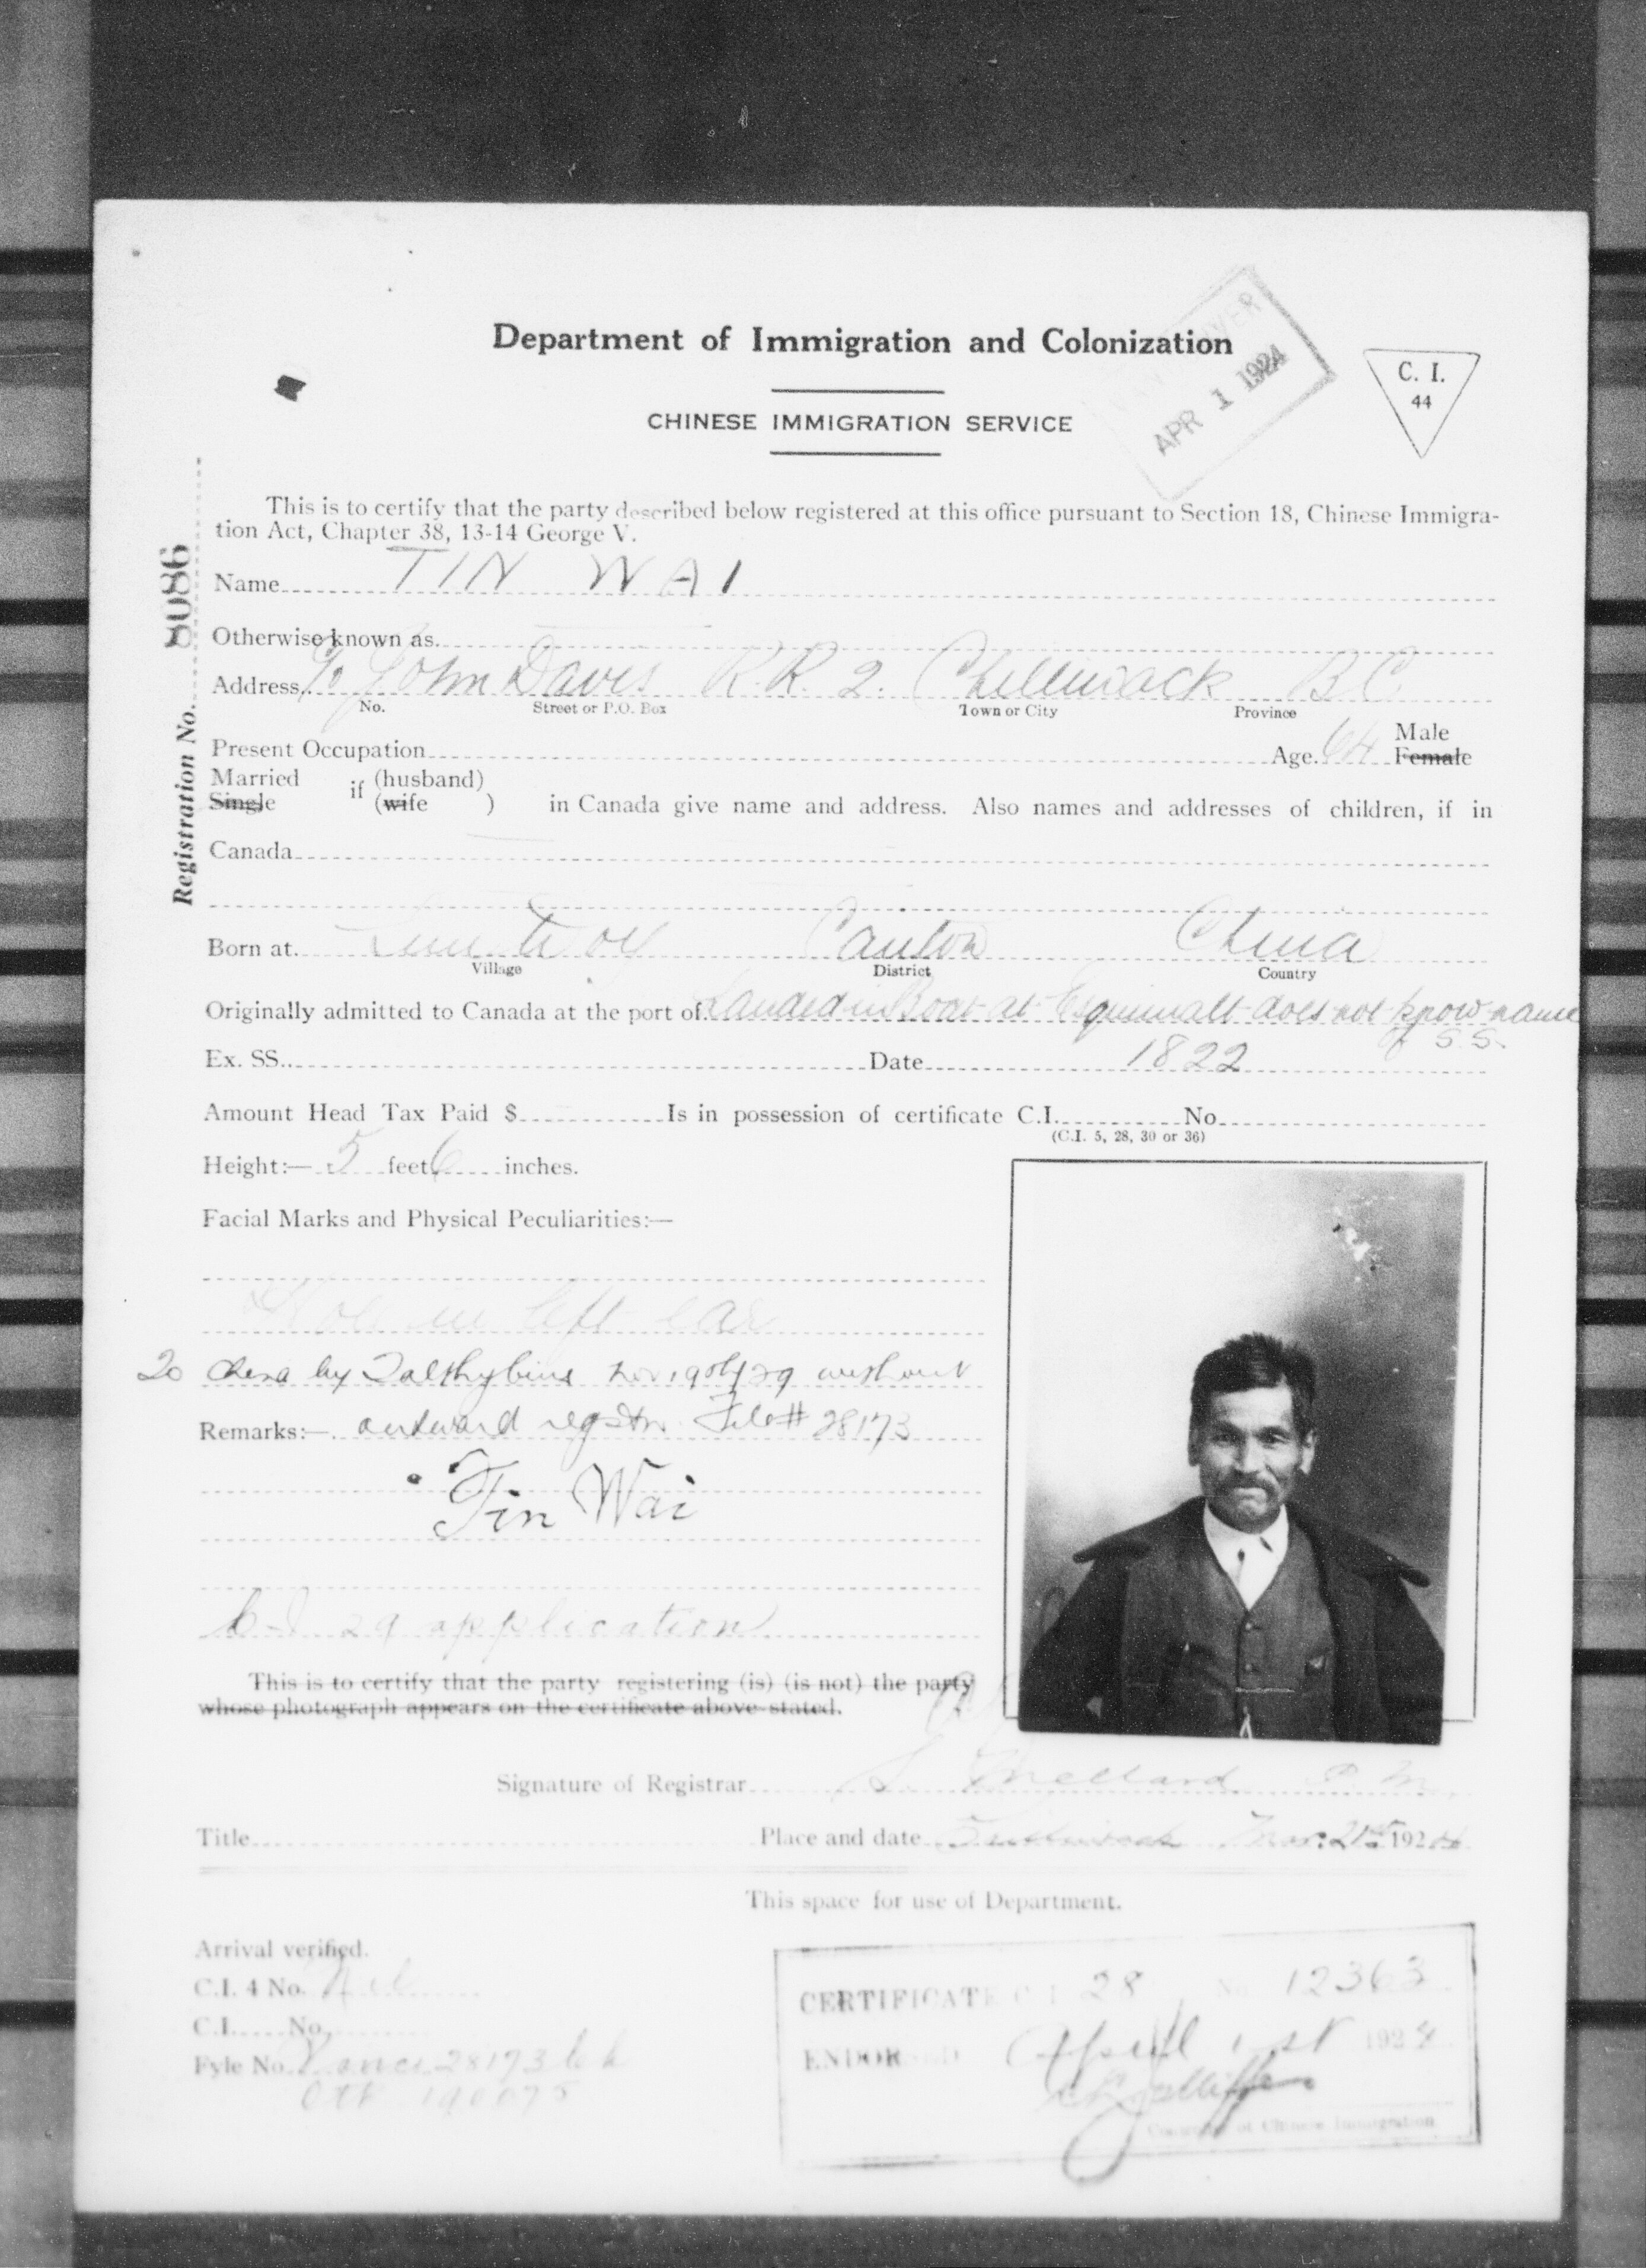 VANCOUVER
APR 1 1924
Department of Immigration and Colonization
C. I.
44
CHINESE IMMIGRATION SERVICE
This is to certify that the party described below registered at this office pursuant to Section 18, Chinese Immigra-
tion Act, Chapter 38, 13-14 George V.
Registration No. 8086
Name TIN WAI
Otherwise known as
Address c/o John Davis R.R. 2. Chilliwack B C
No. Street or P.O. Box Town or City Province
Present Occupation Age 64 Male Female
Married
Single if (husband) (wife ) in Canada give name and address. Also names and addresses of children, if in
Canada
Born at Canton China
Village District Country
Originally admitted to Canada at the port of Landed in Boat at Esquimalt does not know name
of S.S.
Ex. SS. Date 1822
Amount Head Tax Paid $ Is in possession of certificate C.I. No.
(C.I. 5, 28, 30 or 36)
Height:— 5 feet 6 inches.
Facial Marks and Physical Peculiarities:—
in left ear
To China by Talthybius Nov 19th/29 without
Remarks:— outward regstn. File # 28173
Tin Wai
C I 29 application
This is to certify that the party registering (is) (is not) the party
whose photograph appears on the certificate above stated.
Signature of Registrar S. Mellard P. M.
Title Place and date Chilliwack Mar. 21st 1924
This space for use of Department.
Arrival verified.
C.I. 4 No. Nil
C.I. No.
Fyle No. Vanc. 28173
CERTIFICATE C I 28 No. 12363
ENDORSED April 1st 1924
Controller of Chinese Immigration